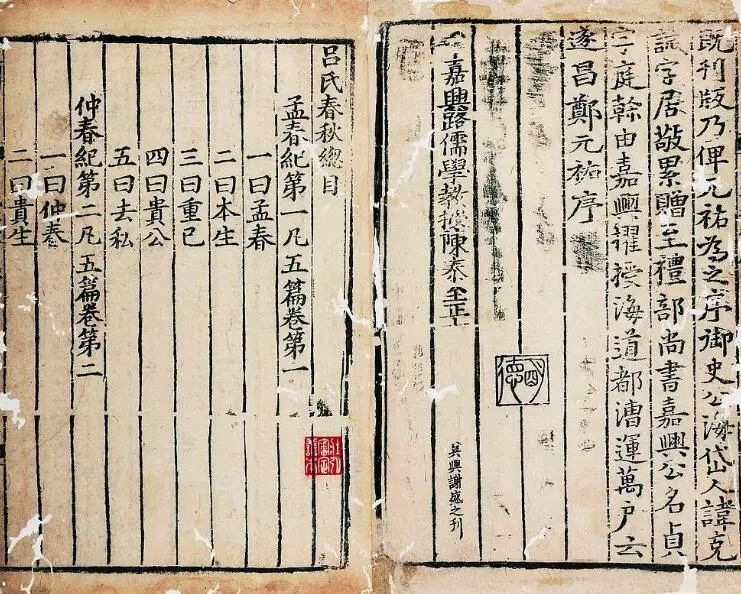 既刊版乃俾元祐為之序御史公海岱人諱克
誠字居敬累贈至禮部尚書嘉興公名貞
字庭幹由嘉興擢授海道都漕運萬戶云
遂昌鄭元祐序
嘉興路儒學教授陳泰至正
明德
吳興謝盛之刊
呂氏春秋總目
孟春紀第一凡五篇卷第一
一曰孟春
二曰本生
三曰重己
四曰貴公
五曰去私
仲春紀第二凡五篇卷第二
一曰仲春
二曰貴生